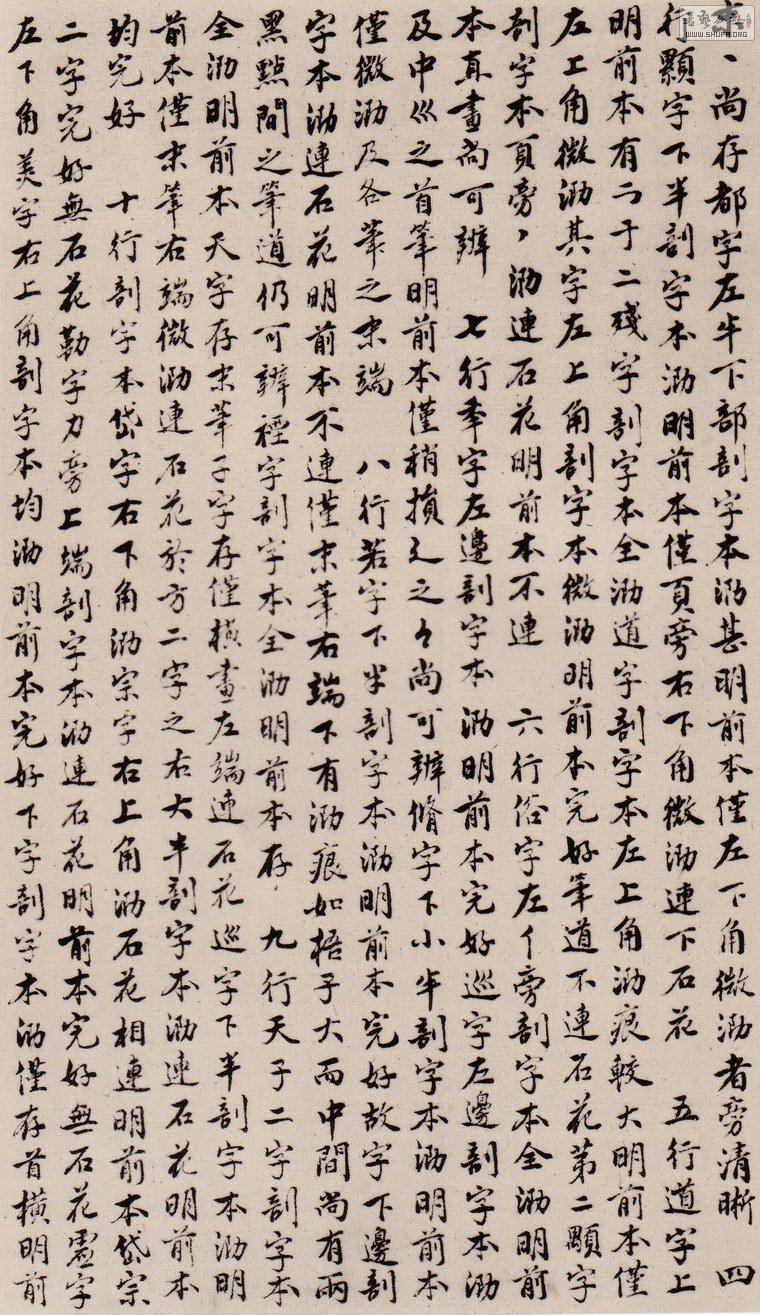 本丶尚存都字左半下部剖字本泐甚明前本僅左下角微泐者旁清晰　四
行顆字下半剖字本泐明前本僅頁旁右下角微泐連下石花　五行道字上
明前本有二于二殘字剖字本全泐道字剖字本左上角泐痕較大明前本僅
左上角微泐其字左上角剖字本微泐明前本完好筆道不連石花第二顆字
剖字本頁旁丿泐連石花明前本不連　六行俗字左亻旁剖字本全泐明前
本真畫尚可辨　七行奉字左邊剖字本泐明前本完好巡字左邊剖字本泐
及中巛之首筆明前本僅稍損辶之々尚可辨脩字下小半剖字本泐明前本
僅微泐及各筆之末端　八行若字下半剖字本泐明前本完好故字下邊剖
字本泐連石花明前本不連僅末筆右端下有泐痕如梧子大而中間尚有兩
黑點間之筆道仍可辨禋字剖字本全泐明前本存　九行天子二字剖字本
全泐明前本天字存末筆子字存僅橫畫左端連石花巡字下半剖字本泐明
前本僅末筆右端微泐連石花於方二字之右大半剖字本泐連石花明前本
均完好　十行剖字本岱字右下角泐宗字右上角泐石花相連明前本岱宗
二字完好無石花勒字力旁上端剖字本泐連石花明前本完好無石花虛字
左下角美字右上角剖字本均泐明前本完好下字剖字本泐僅存首橫明前
WWW.SHUFA.ORG